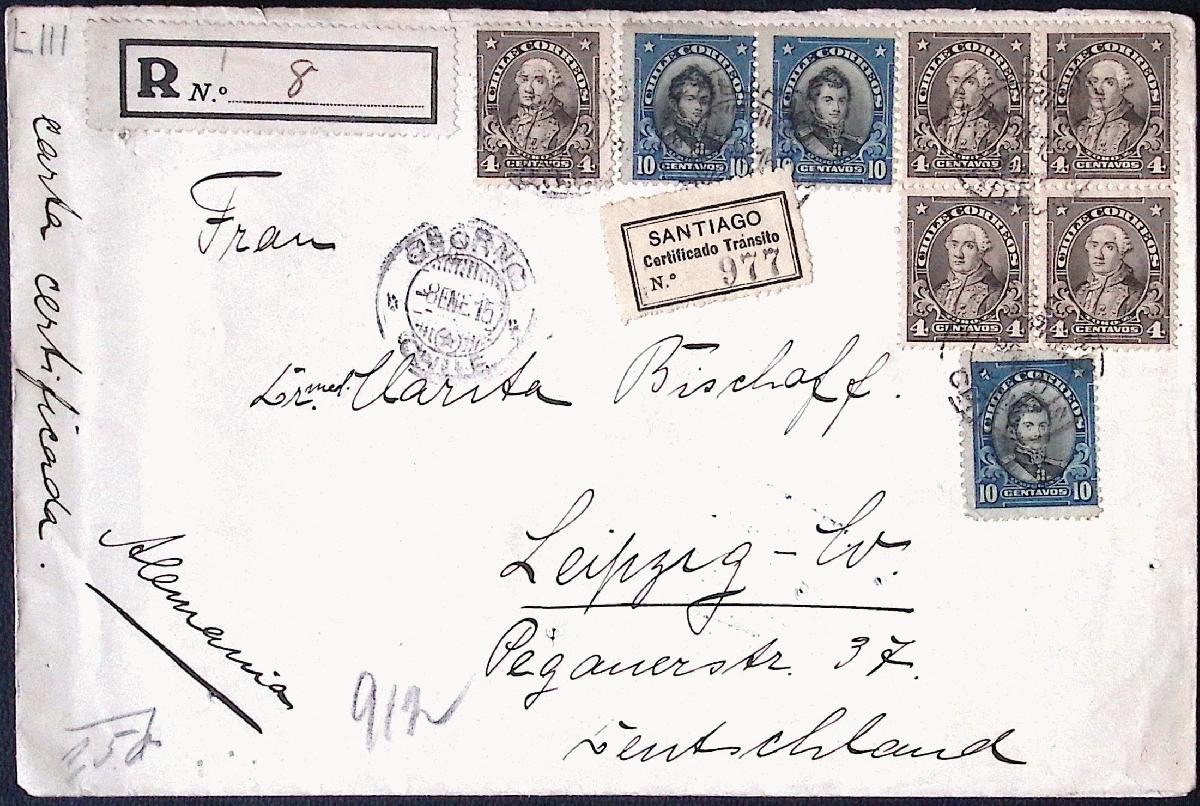 LIII
R N.º 8
CHILE CORREOS
4 CENTAVOS 4
CHILE CORREOS
10 CENTAVOS 10
CHILE CORREOS
10 CENTAVOS 10
CHILE CORREOS
4 CENTAVOS 4
CHILE CORREOS
4 CENTAVOS 4
CHILE CORREOS
4 CENTAVOS 4
CHILE CORREOS
4 CENTAVOS 4
CHILE CORREOS
10 CENTAVOS 10
SANTIAGO
Certificado Tránsito
N.º 977
OSORNO
8 ENE 15
CHILE
Carta certificada.
Frau
Dr. med. Clarita Bischoff.
Leipzig - W.
Pegauerstr. 37.
Deutschland
Alemania
912